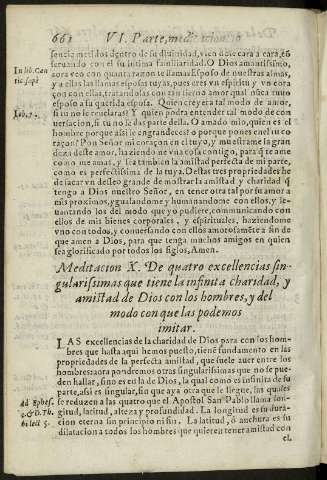 662 VI. Parte, meditacion
sencia metidos dentro de su diuinidad, viendo te cara a cara, cõ
seruando con el su intima familiaridad. O Dios amantissimo,
aora veo con quanta razon te llamas Esposo de nuestras almas,
y a ellas las llamas esposas tuyas, pues eres vn espiritu y vn cora
çon con ellas, tratandolas con tan tierno amor qual nũca tuuo
esposo a su querida esposa. Quien creyera tal modo de amor,
si tu no le reuelaras? Y quien podra entender tal modo de con
uersacion, si tu no le das parte della. O amado mio, quien es el
hombre porque assi le engrandeces? o porque pones en el tu co
raçon? Pon Señor mi coraçon en el tuyo, y muestrame la gran
deza deste amor, haziendo me vna cosa contigo, para q̃ te ame
como me amas, y sea tambien la amistad perfecta de mi parte,
como es perfectissima de la tuya. Destas tres propriedades he
de sacar vn desseo grande de mostrar la amistad y charidad q̃
tengo a Dios nuestro Señor, en tener otra tal por su amor a
mis proximos, ygualandome y humanandome con ellos, y le-
uantando los del modo que yo pudiere, communicando con
ellos de mis bienes corporales, y espirituales, haziendome
vno con todos, y conuersando con ellos amorosamẽte a fin de
que amen a Dios, para que tenga muchos amigos en quien
sea glorificado por todos los siglos, Amen.
In lib. Can
tic. supà
Iob. 7.
Meditacion X. De quatro excellencias sin-
gularissimas que tiene la infinita charidad, y
amistad de Dios con los hombres, y del
modo con que las podemos
imitar.
LAS excellencias de la charidad de Dios para con los hom-
bres que hasta aqui hemos puesto, tienẽ fundamento en las
propriedades de la perfecta amistad, que suele auer entre los
hombres: aora pondremos otras singularissimas que no se pue-
den hallar, sino es en la de Dios, la qual como es infinita de su
parte, assi es singular, sin que aya otra que le llegue, las quales
se reduzen a las quatro que el Apostol San Pablo llama lon-
gitud, latitud, alteza y profundidad. La longitud es su dura-
cion eterna sin principio ni fin. La latitud, ò anchura es su
dilatacion a todos los hombres que quieren tener amistad con
ad Ephes.
3. & D. Th.
ibi lect 5.
el.